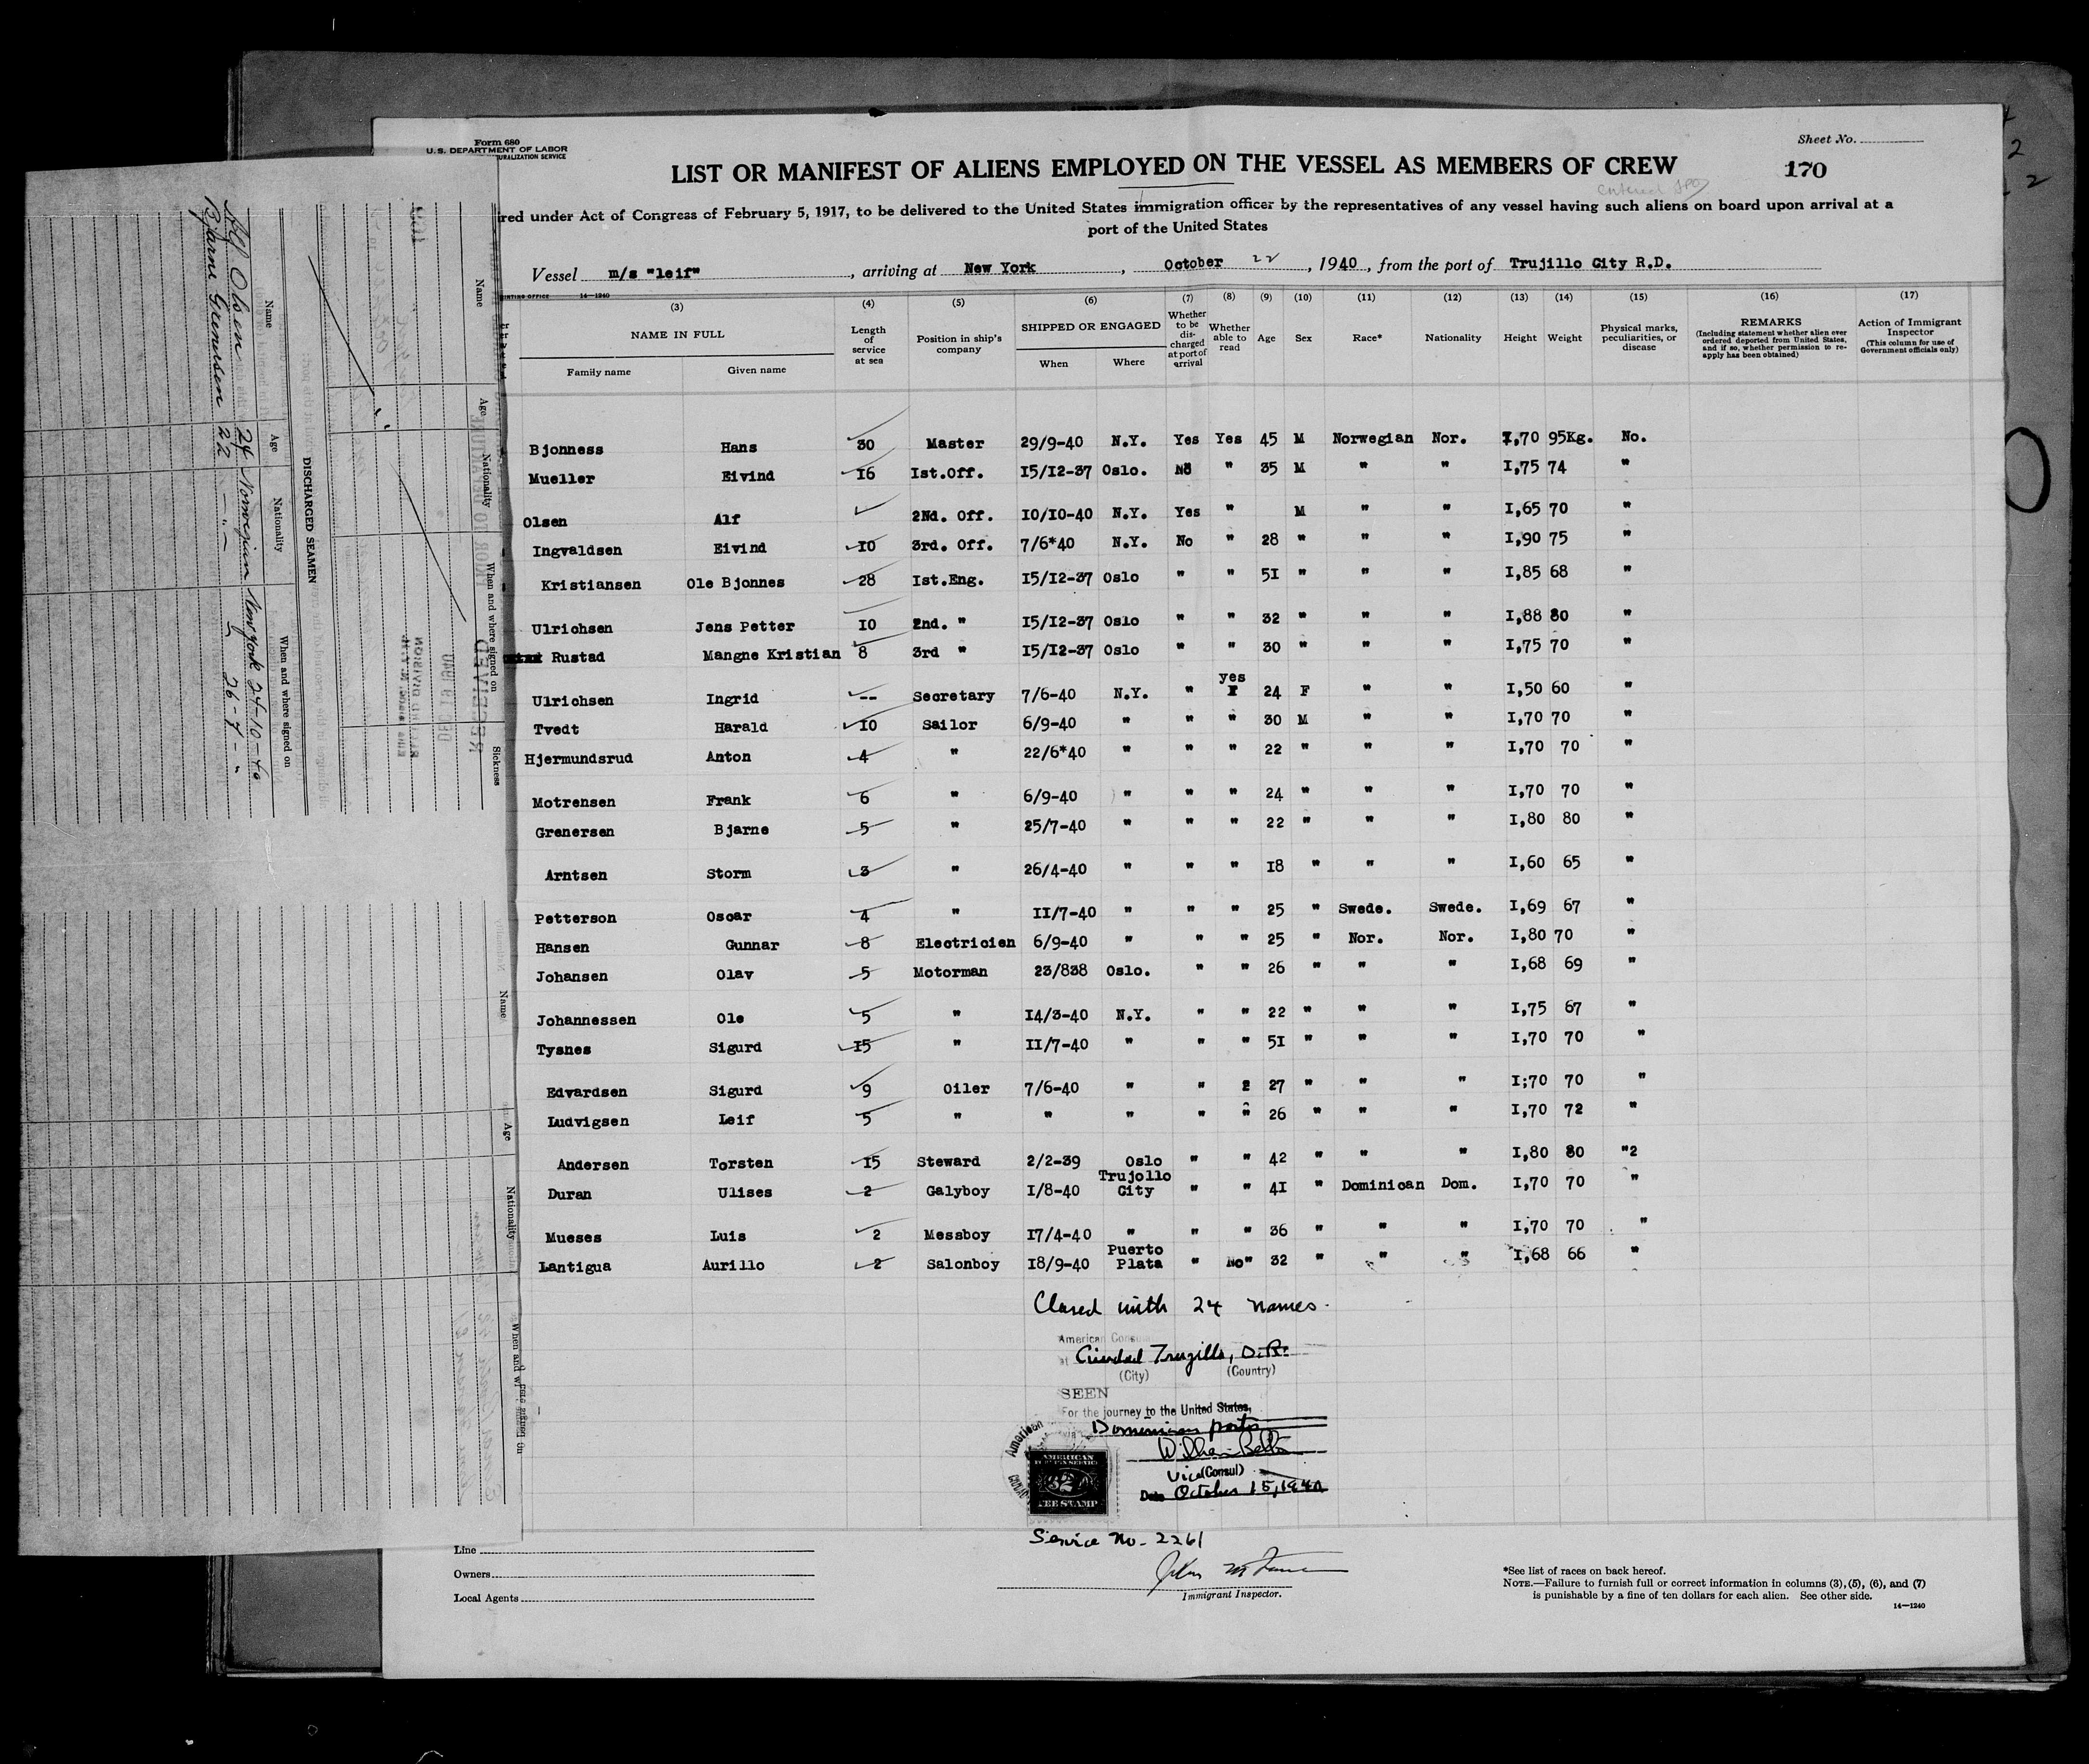 Form 680
U.S. DEPARTMENT OF LABOR
URALIZATION SERVICE
Sheet No.
LIST OR MANIFEST OF ALIENS EMPLOYED ON THE VESSEL AS MEMBERS OF CREW
170
entered
red under Act of Congress of February 5, 1917, to be delivered to the United States immigration officer by the representatives of any vessel having such aliens on board upon arrival at a
port of the United States
Vessel m/s "leif" , arriving at New York , October 22 , 1940 , from the port of Trujillo City R.D.
INTING OFFICE 14—1240
(3) (4) (5) (6) (7) (8) (9) (10) (11) (12) (13) (14) (15) (16) (17)
NAME IN FULL Family name Given name Length of service at sea Position in ship's company SHIPPED OR ENGAGED When Where Whether to be discharged at port of arrival Whether able to read Age Sex Race* Nationality Height Weight Physical marks, peculiarities, or disease REMARKS (Including statement whether alien ever ordered deported from United States, and if so, whether permission to reapply has been obtained) Action of Immigrant Inspector (This column for use of Government officials only)
Bjonness Hans 30 Master 29/9-40 N.Y. Yes Yes 45 M Norwegian Nor. 1,70 95Kg. No.
Mueller Eivind 16 Ist.Off. I5/I2-37 Oslo. No " 35 M " " I,75 74 "
Olsen Alf 2Nd. Off. I0/I0-40 N.Y. Yes " M " " I,65 70 "
Ingvaldsen Eivind I0 3rd. Off. 7/6*40 N.Y. No " 28 " " " I,90 75 "
Kristiansen Ole Bjonnes 28 Ist.Eng. I5/I2-37 Oslo " " 5I " " " I,85 68 "
Ulrichsen Jens Petter I0 2nd. " I5/I2-37 Oslo " " 32 " " " I,88 80 "
Rustad Mangne Kristian 8 3rd " I5/I2-37 Oslo " " 30 " " " I,75 70 "
Ulrichsen Ingrid -- Secretary 7/6-40 N.Y. " yes 24 F " " I,50 60 "
Tvedt Harald I0 Sailor 6/9-40 " " " 30 M " " I,70 70 "
Hjermundsrud Anton 4 " 22/6*40 " " " 22 " " " I,70 70 "
Motrensen Frank 6 " 6/9-40 " " " 24 " " " I,70 70 "
Grenersen Bjarne 5 " 25/7-40 " " " 22 " " " I,80 80 "
Arntsen Storm 3 " 26/4-40 " " " I8 " " " I,60 65 "
Petterson Oscar 4 " II/7-40 " " " 25 " Swede. Swede. I,69 67 "
Hansen Gunnar 8 Electricien 6/9-40 " " " 25 " Nor. Nor. I,80 70 "
Johansen Olav 5 Motorman 23/838 Oslo. " " 26 " " " I,68 69 "
Johannessen Ole 5 " I4/3-40 N.Y. " " 22 " " " I,75 67 "
Tysnes Sigurd I5 " II/7-40 " " " 5I " " " I,70 70 "
Edvardsen Sigurd 9 Oiler 7/6-40 " " 2 27 " " " I;70 70 "
Ludvigsen Leif 5 " " " " " 26 " " " I,70 72 "
Andersen Torsten I5 Steward 2/2-39 Oslo " " 42 " " " I,80 80 "2
Duran Ulises 2 Galyboy I/8-40 Trujollo City " " 4I " Dominican Dom. I,70 70 "
Mueses Luis 2 Messboy I7/4-40 " " " 36 " " " I,70 70 "
Lantigua Aurillo 2 Salonboy I8/9-40 Puerto Plata " No" 32 " " " I,68 66 "
Closed with 24 names.
American Consul
at Ciudad Trujillo, D.R.
(City) (Country)
SEEN
For the journey to the United States,
via Dominican ports
Vice (Consul)
Date October 15, 1940
AMERICAN
FEE STAMP
Service No. 2261
Immigrant Inspector.
Line
Owners
Local Agents
*See list of races on back hereof.
NOTE.—Failure to furnish full or correct information in columns (3), (5), (6), and (7)
is punishable by a fine of ten dollars for each alien. See other side.
14—1240
Name Age Nationality When and where signed on Sickness
DISCHARGED SEAMEN
Name Age Nationality When and where signed on
Alf Olsen 24 Norwegian New York 24-10-40
Bjarne Grenersen 22 -"- " 26-7-"
RECEIVED
Name Age Nationality When and where signed on